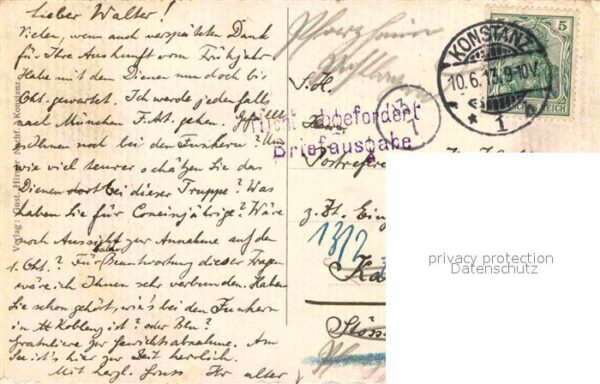 Lieber Walter!
Vielen, wenn auch verspäteten Dank
für Ihre Auskunft vom Frühjahr
Habe mit dem Dienen nun doch bis
Okt. gewartet. Ich werde jedenfalls
nach München gehen. Gefällt
es Ihnen noch bei den Funkern? Um
wie viel teurer schätzen Sie das
Dienen dort bei dieser Truppe? Was
haben Sie für Coneinjährige? Wäre
noch Aussicht zur Annahme auf den
1. Okt.? Für Beantwortung dieser Fragen
wäre ich Ihnen sehr verbunden. Haben
Sie schon gehört, wie's bei den Funkern
in Koblenz ist? oder Bln?
Gratuliere zur Gewichtsabnahme. Am
See ist's hier zur Zeit herrlich.
Mit herzl. Gruss Ihr alter
Verlag: Gust. Hirner Nachf., Konstanz.
Pforzheim
KONSTANZ
10.6.13.9-10V.
* 1
5
REICH
S.H.
Nicht abgefordert
Briefausgabe
z. Zt.
1312
privacy protection
Datenschutz